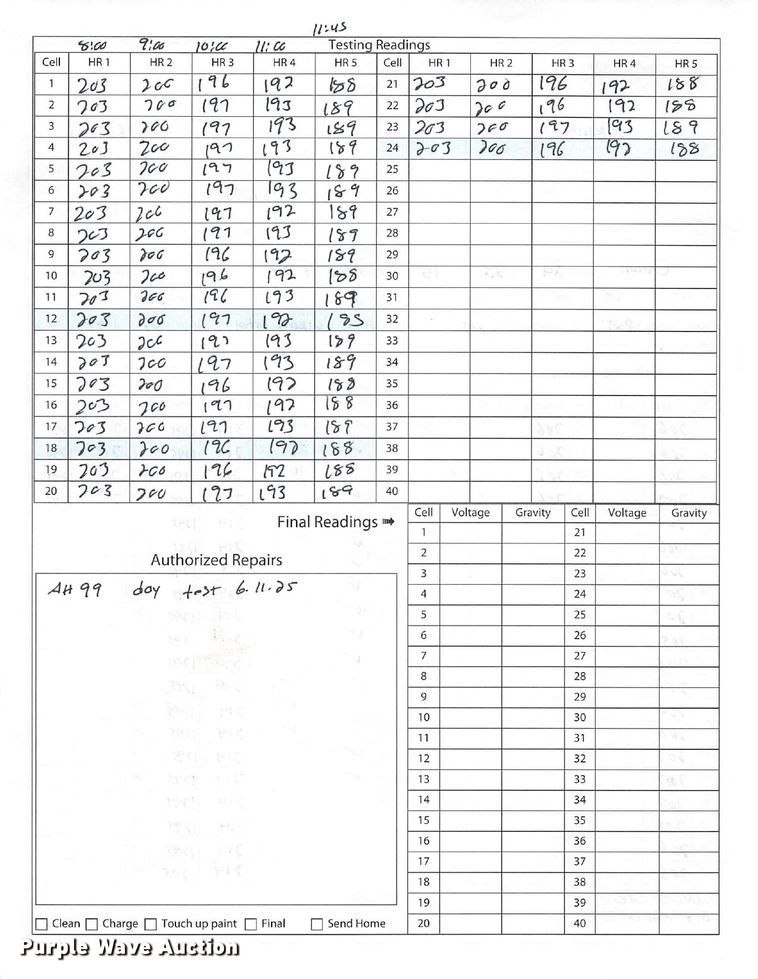 11:45
8:00 9:00 10:00 11:00 Testing Readings
Cell HR 1 HR 2 HR 3 HR 4 HR 5 Cell HR 1 HR 2 HR 3 HR 4 HR 5
1 203 200 196 192 188 21 203 200 196 192 188
2 203 200 197 193 189 22 203 200 196 192 188
3 203 200 197 193 189 23 203 200 197 193 189
4 203 200 197 193 189 24 203 200 196 192 188
5 203 200 197 193 189 25
6 203 200 197 193 189 26
7 203 200 197 192 189 27
8 203 200 197 193 189 28
9 203 200 196 192 189 29
10 203 200 196 192 188 30
11 203 200 196 193 189 31
12 203 200 197 192 185 32
13 203 200 197 193 189 33
14 203 200 197 193 189 34
15 203 200 196 192 188 35
16 203 200 197 192 188 36
17 203 200 197 193 189 37
18 203 200 196 192 188 38
19 203 200 196 192 188 39
20 203 200 197 193 189 40
Final Readings
Cell Voltage Gravity Cell Voltage Gravity
1 21
2 22
3 23
4 24
5 25
6 26
7 27
8 28
9 29
10 30
11 31
12 32
13 33
14 34
15 35
16 36
17 37
18 38
19 39
20 40
Authorized Repairs
AH 99 day test 6.11.25
Clean Charge Touch up paint Final Send Home
Purple Wave Auction